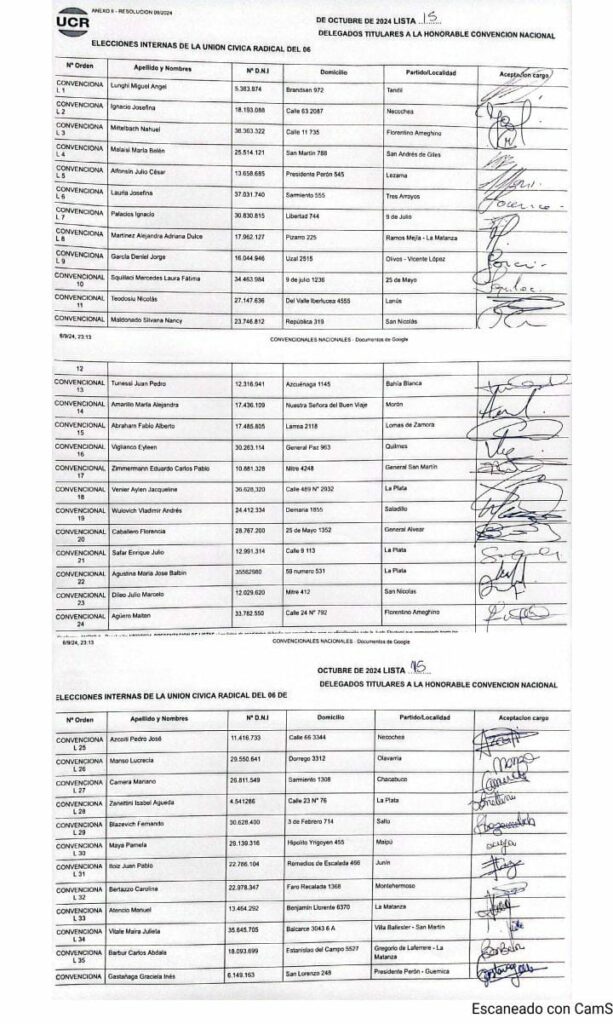 UCR
ANEXO II - RESOLUCION 06/2024
DE OCTUBRE DE 2024 LISTA 15
DELEGADOS TITULARES A LA HONORABLE CONVENCION NACIONAL
ELECCIONES INTERNAS DE LA UNION CIVICA RADICAL DEL 06
Nº Orden Apellido y Nombres Nº D.N.I Domicilio Partido/Localidad Aceptacion cargo
CONVENCIONAL 1 Lunghi Miguel Angel 5.383.874 Brandsen 972 Tandil
CONVENCIONAL 2 Ignacio Josefina 18.193.088 Calle 63 2087 Necochea
CONVENCIONAL 3 Mittelbach Nahuel 38.363.322 Calle 11 735 Florentino Ameghino
CONVENCIONAL 4 Malaisi María Belén 25.514.121 San Martin 788 San Andrés de Giles
CONVENCIONAL 5 Alfonsin Julio César 13.658.685 Presidente Perón 545 Lezama
CONVENCIONAL 6 Lauria Josefina 37.031.740 Sarmiento 555 Tres Arroyos
CONVENCIONAL 7 Palacios Ignacio 30.830.815 Libertad 744 9 de Julio
CONVENCIONAL 8 Martinez Alejandra Adriana Dulce 17.962.127 Pizarro 225 Ramos Mejía - La Matanza
CONVENCIONAL 9 García Daniel Jorge 16.044.946 Uzal 2515 Olivos - Vicente López
CONVENCIONAL 10 Squillaci Mercedes Laura Fátima 34.463.984 9 de julio 1236 25 de Mayo
CONVENCIONAL 11 Teodosiu Nicolás 27.147.636 Del Valle Iberlucea 4555 Lanús
CONVENCIONAL Maldonado Silvana Nancy 23.746.812 República 319 San Nicolás
6/9/24, 23:13 CONVENCIONALES NACIONALES - Documentos de Google
12
CONVENCIONAL 13 Tunessi Juan Pedro 12.316.941 Azcuénaga 1145 Bahía Blanca
CONVENCIONAL 14 Amarillo María Alejandra 17.436.109 Nuestra Señora del Buen Viaje Morón
CONVENCIONAL 15 Abraham Fabio Alberto 17.485.805 Larrea 2118 Lomas de Zamora
CONVENCIONAL 16 Viglianco Eyleen 30.263.114 General Paz 963 Quilmes
CONVENCIONAL 17 Zimmermann Eduardo Carlos Pablo 10.881.328 Mitre 4248 General San Martín
CONVENCIONAL 18 Venier Aylen Jacqueline 36.628.320 Calle 489 Nº 2932 La Plata
CONVENCIONAL 19 Wulovich Vladimir Andrés 24.412.334 Demaria 1855 Saladillo
CONVENCIONAL 20 Caballero Florencia 28.767.200 25 de Mayo 1352 General Alvear
CONVENCIONAL 21 Safar Enrique Julio 12.991.314 Calle 9 113 La Plata
CONVENCIONAL 22 Agustina Maria Jose Balbin 35562980 59 numero 531 La Plata
CONVENCIONAL 23 Dileo Julio Marcelo 12.029.620 Mitre 412 San Nicolas
CONVENCIONAL 24 Agüero Maiten 33.782.550 Calle 24 Nº 792 Florentino Ameghino
6/9/24, 23:13 CONVENCIONALES NACIONALES - Documentos de Google
OCTUBRE DE 2024 LISTA 15
DELEGADOS TITULARES A LA HONORABLE CONVENCION NACIONAL
ELECCIONES INTERNAS DE LA UNION CIVICA RADICAL DEL 06 DE
Nº Orden Apellido y Nombres Nº D.N.I Domicilio Partido/Localidad Aceptacion cargo
CONVENCIONAL 25 Azcoiti Pedro José 11.416.733 Calle 66 3344 Necochea
CONVENCIONAL 26 Manso Lucrecia 29.550.641 Dorrego 3312 Olavarria
CONVENCIONAL 27 Camera Mariano 26.811.549 Sarmiento 1308 Chacabuco
CONVENCIONAL 28 Zanettini Isabel Agueda 4.541286 Calle 23 Nº 76 La Plata
CONVENCIONAL 29 Blazevich Fernando 30.628.400 3 de Febrero 714 Salto
CONVENCIONAL 30 Maya Pamela 29.139.316 Hipólito Yrigoyen 455 Maipú
CONVENCIONAL 31 Illoiz Juan Pablo 22.786.104 Remedios de Escalada 466 Junín
CONVENCIONAL 32 Bertazzo Carolina 22.978.347 Faro Recalada 1368 Montehermoso
CONVENCIONAL 33 Atencio Manuel 13.464.292 Benjamín Llorente 6370 La Matanza
CONVENCIONAL 34 Vitale Maira Julieta 35.645.705 Balcarce 3043 6 A Villa Ballester - San Martín
CONVENCIONAL 35 Barbur Carlos Abdala 18.093.699 Estanislao del Campo 5527 Gregorio de Laferrere - La Matanza
CONVENCIONAL Gastañaga Graciela Inés 6.149.163 San Lorenzo 248 Presidente Perón - Guernica
Escaneado con CamS